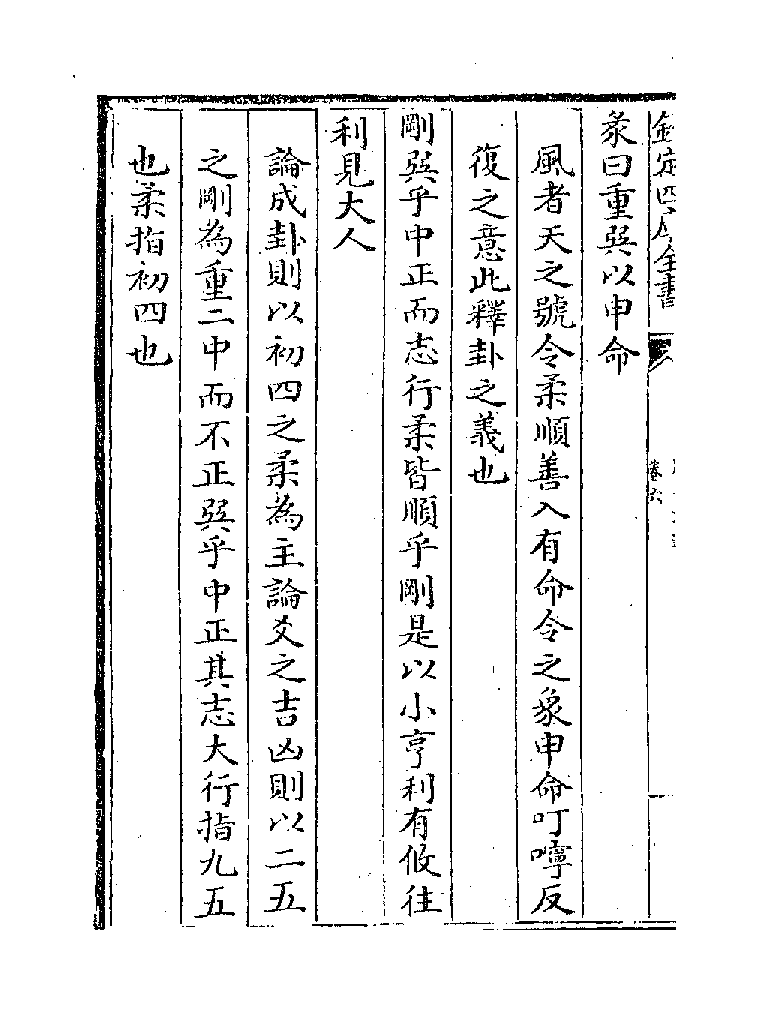 欽定四庫全書
卷六
彖曰重巽以申命
風者天之號令柔順善入有命令之象申命叮嚀反
復之意此釋卦之義也
剛巽乎中正而志行柔皆順乎剛是以小亨利有攸往
利見大人
論成卦則以初四之柔為主論爻之吉凶則以二五
之剛為重二中而不正巽乎中正其志大行指九五
也柔指初四也